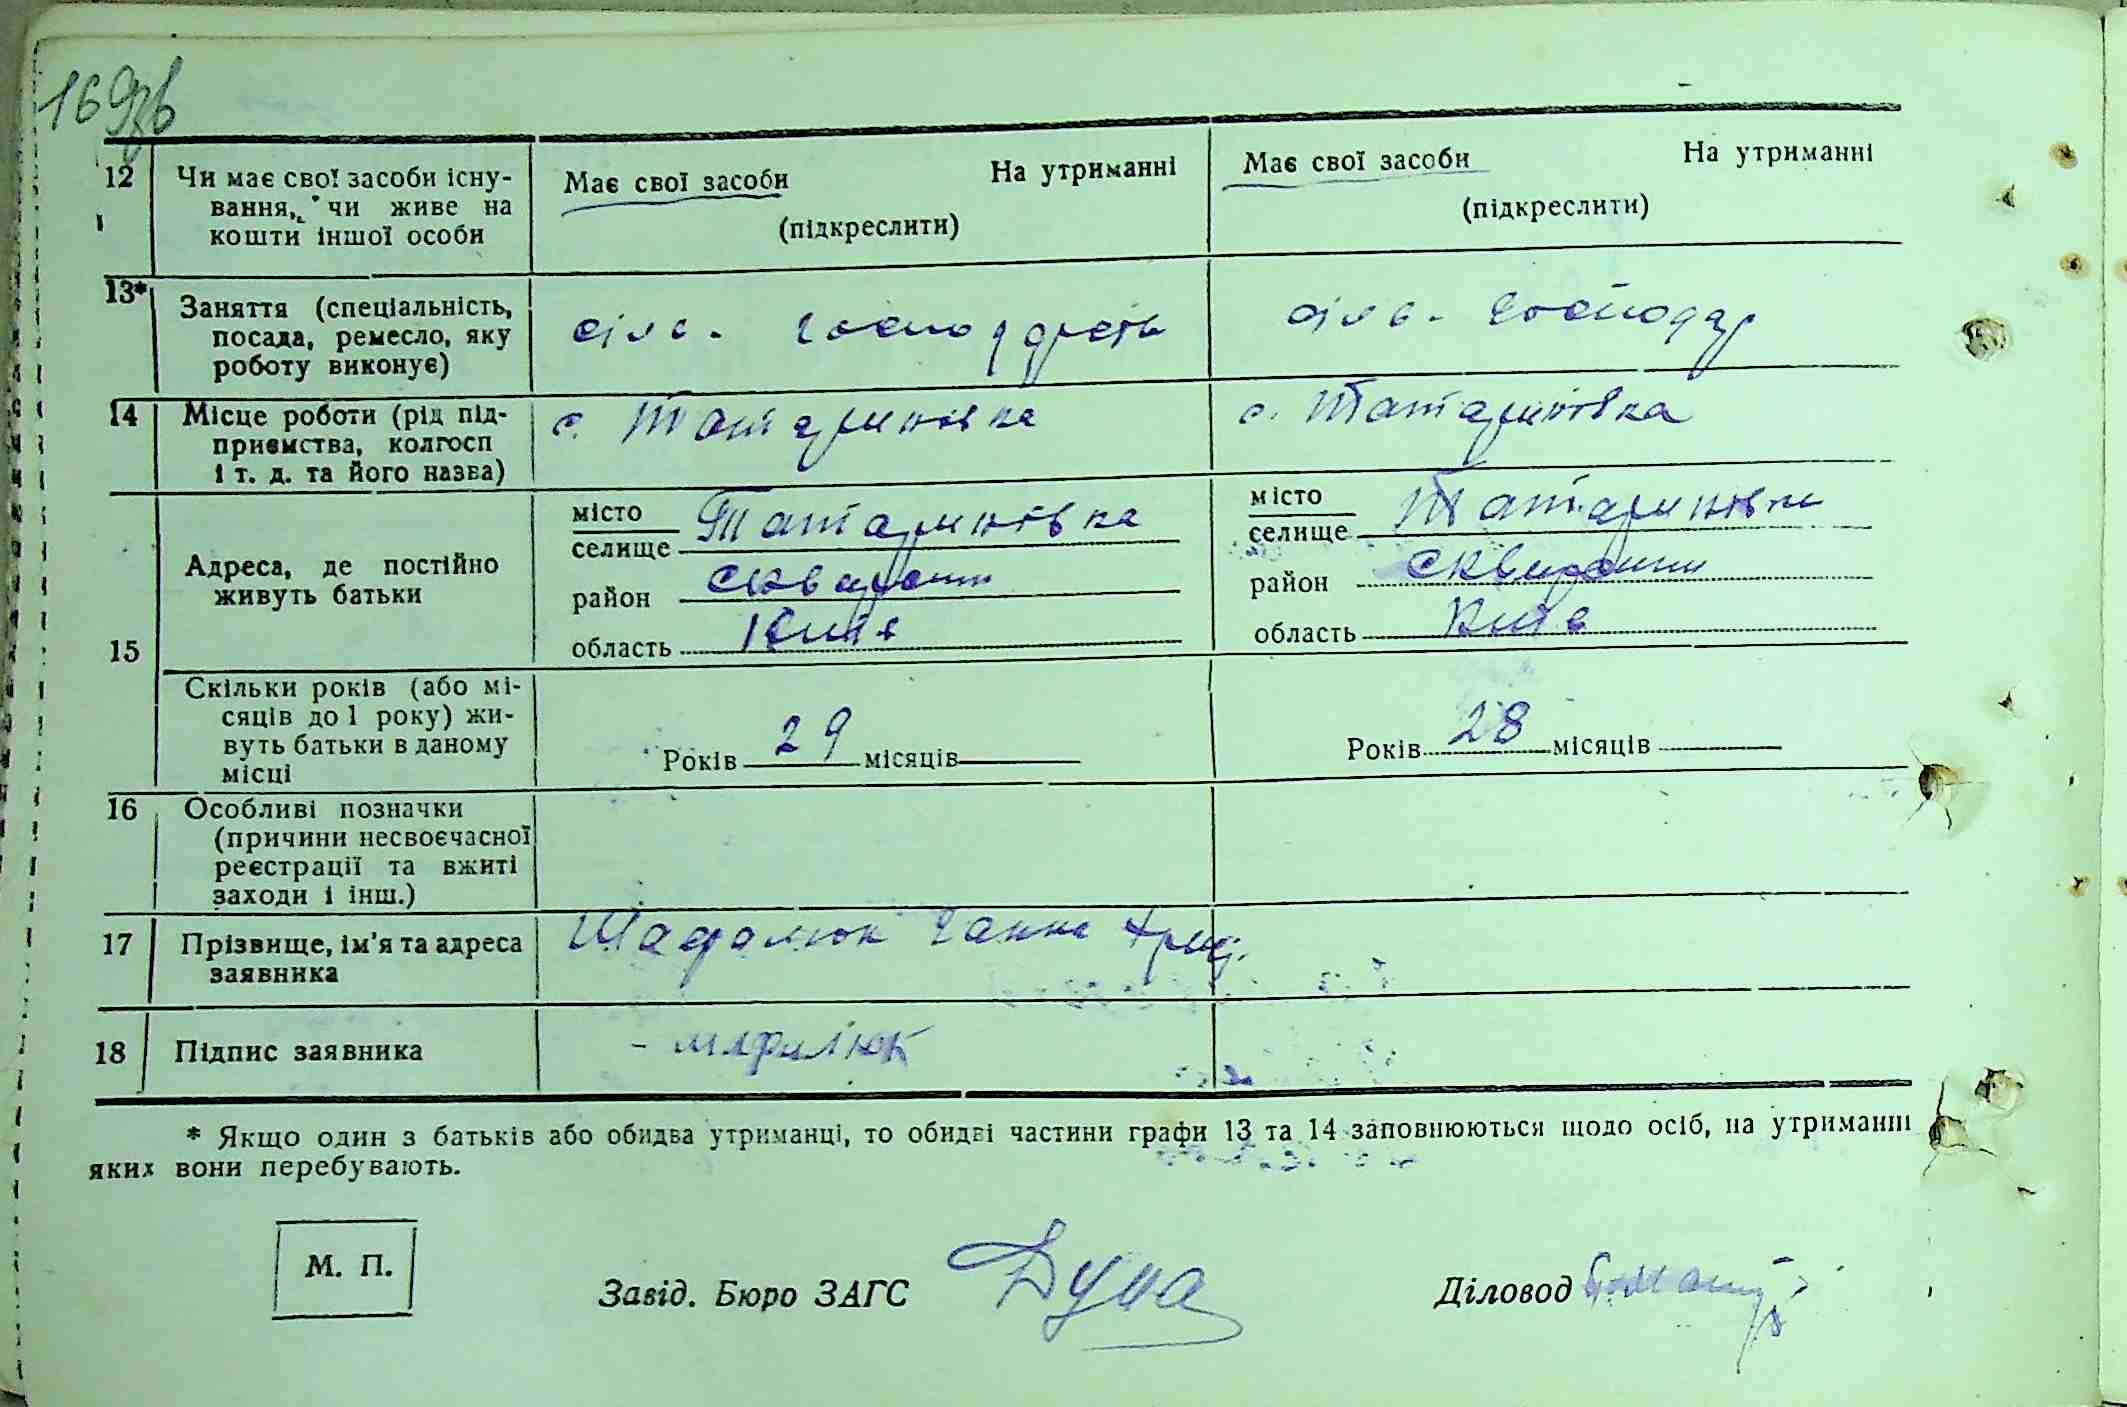 169зв
12 Чи має свої засоби існу-
вання, чи живе на
кошти іншої особи
Має свої засоби На утриманні
(підкреслити)
Має свої засоби На утриманні
(підкреслити)
13* Заняття (спеціальність,
посада, ремесло, яку
роботу виконує)
сільс.
сільс. господар
14 Місце роботи (рід під-
приємства, колгосп
і т. д. та його назва)
с. Татариновка
с. Татариновка
15 Адреса, де постійно
живуть батьки
місто
селище Татариновка
район
область Київ
місто
селище Татариновка
район Сквирський
область Київ
Скільки років (або мі-
сяців до 1 року) жи-
вуть батьки в даному
місці
Років 29 місяців
Років 28 місяців
16 Особливі позначки
(причини несвоєчасної
реєстрації та вжиті
заходи і інш.)
17 Прізвище, ім'я та адреса
заявника
Шафалюк Ганна
18 Підпис заявника
* Якщо один з батьків або обидва утриманці, то обидві частини графи 13 та 14 заповнюються щодо осіб, на утриманні
яких вони перебувають.
М. П.
Завід. Бюро ЗАГС
Діловод